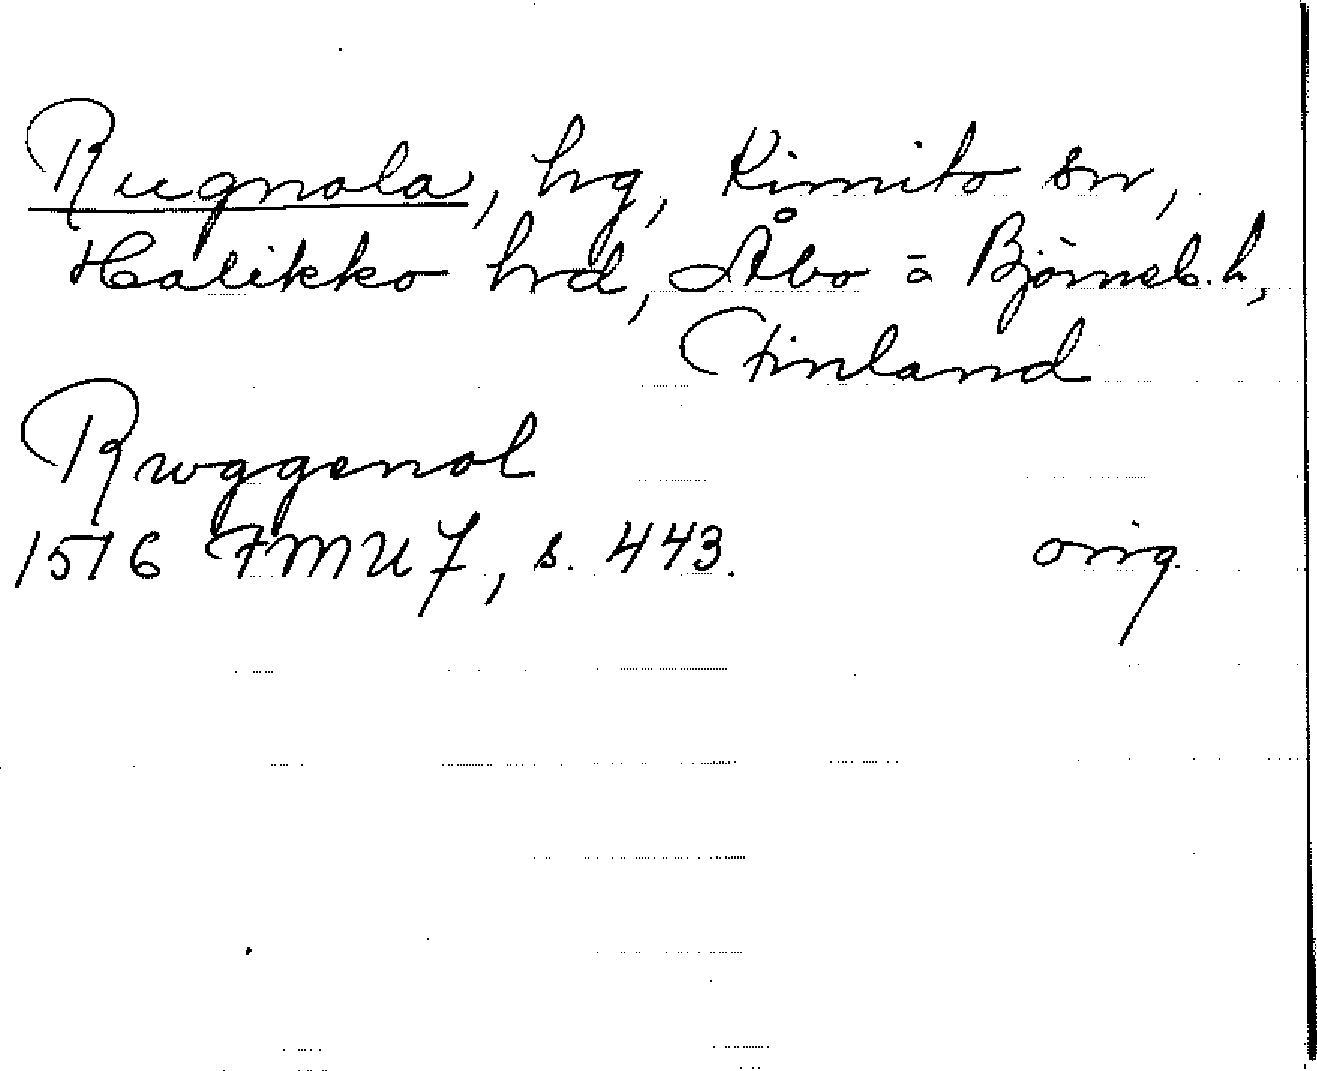 Rugnola, hg, Kimito sn,
Halikko hrd, Åbo = Björneb. l,
Finland
Rwggenol
1516 FMU 7, s. 443. orig.